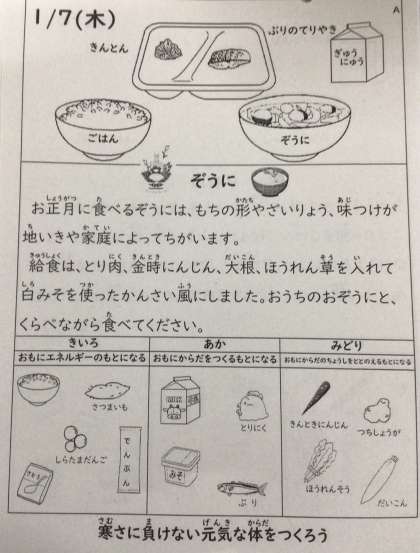 1/7(木)
A
きんとん
ぶりのてりやき
ぎゅうにゅう
ごはん
ぞうに
ぞうに
お正月に食べるぞうには、もちの形やざいりょう、味つけが
地いきや家庭によってちがいます。
給食は、とり肉、金時にんじん、大根、ほうれん草を入れて
白みそを使ったかんさい風にしました。おうちのおぞうにと、
くらべながら食べてください。
きいろ
あか
みどり
おもにエネルギーのもとになる
おもにからだをつくるもとになる
おもにからだのちょうしをととのえるもとになる
さつまいも
とりにく
きんときにんじん
つちしょうが
しらたまだんご
でんぷん
みそ
ほうれんそう
さとう
ぶり
だいこん
寒さに負けない元気な体をつくろう